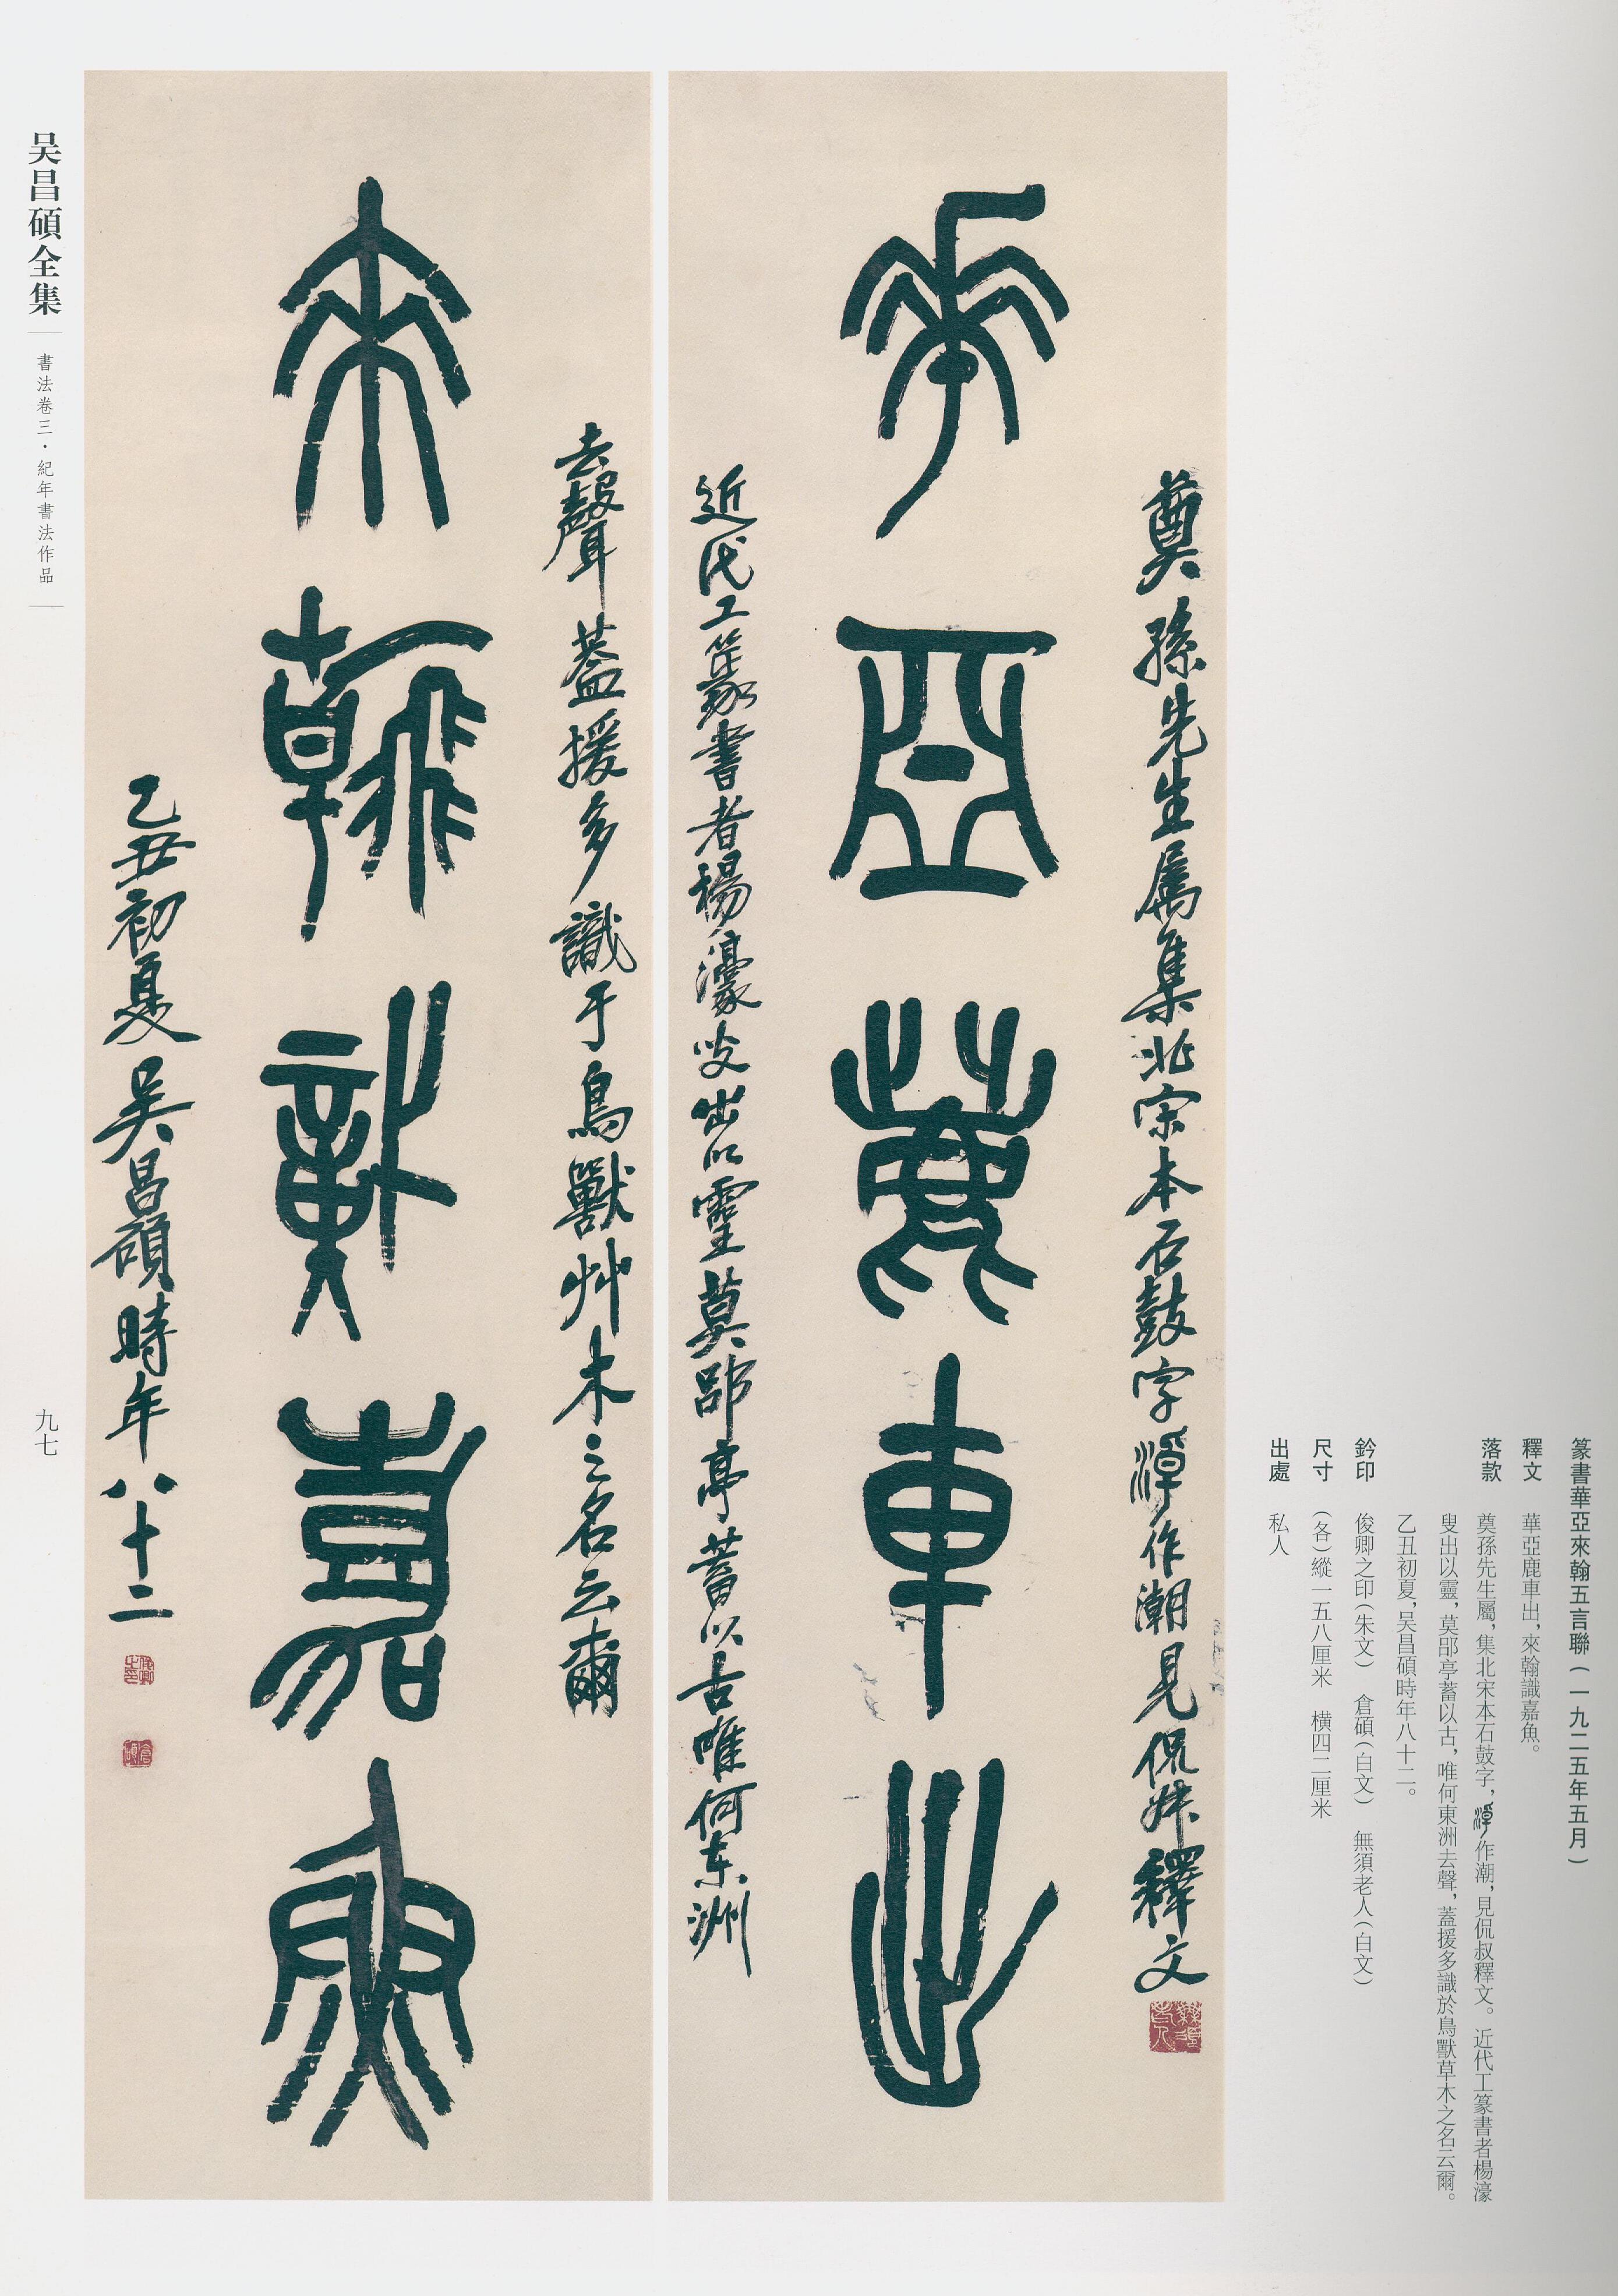 篆書華亞來翰五言聯（一九二五年五月）
釋文　華亞鹿車出，來翰識嘉魚。
落款　奠孫先生屬，集北宋本石鼓字，淖作潮，見侃叔釋文。近代工篆書者楊濠
叟出以靈，莫郘亭蓄以古，唯何東洲去聲，蓋援多識於鳥獸草木之名云爾。
乙丑初夏，吴昌碩時年八十二。
鈐印　俊卿之印（朱文）　倉碩（白文）　無須老人（白文）
尺寸　（各）縱一五八厘米　橫四二厘米
出處　私人
奠孫先生屬集北宋本石鼓字淖作潮見侃叔釋文
無須老人
華亞鹿車出
近代工篆書者楊濠叟出以靈莫郘亭蓄以古唯何东洲
去聲蓋援多識于鳥獸艸木之名云爾
來翰識嘉魚
乙丑初夏吴昌碩時年八十二
俊卿之印
倉碩
吴昌碩全集
書法卷三・紀年書法作品
九七